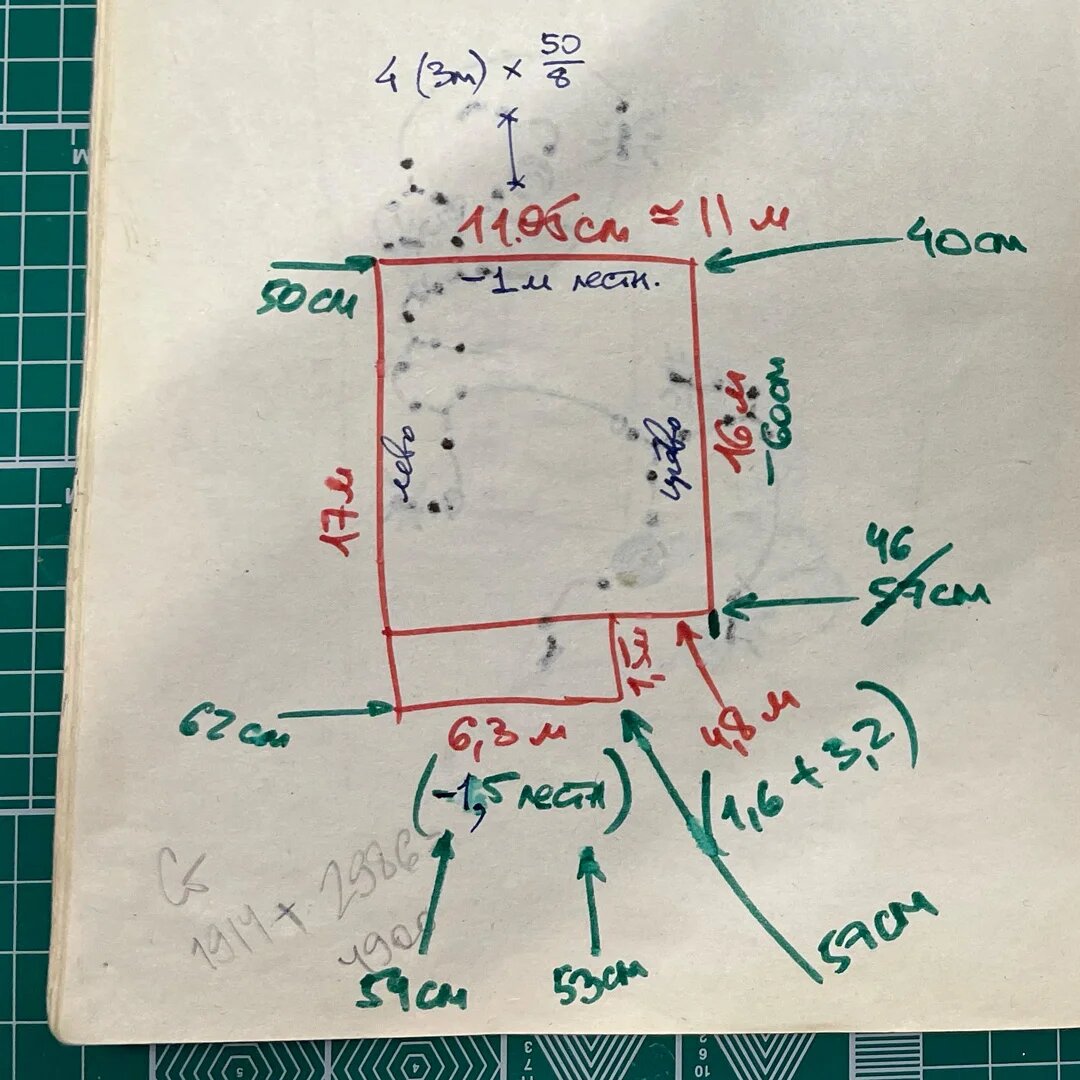 4 (3м) × 50/8
11.05см ≈ 11 м
40см
50см
-1м лестн.
лево
право
16 м
-60см
17м
46
57см
1,3
62см
6,3 м
4,8 м
(-1,5 лестн)
(1,6 + 3,2)
1914 + 2986
54см
53см
57см